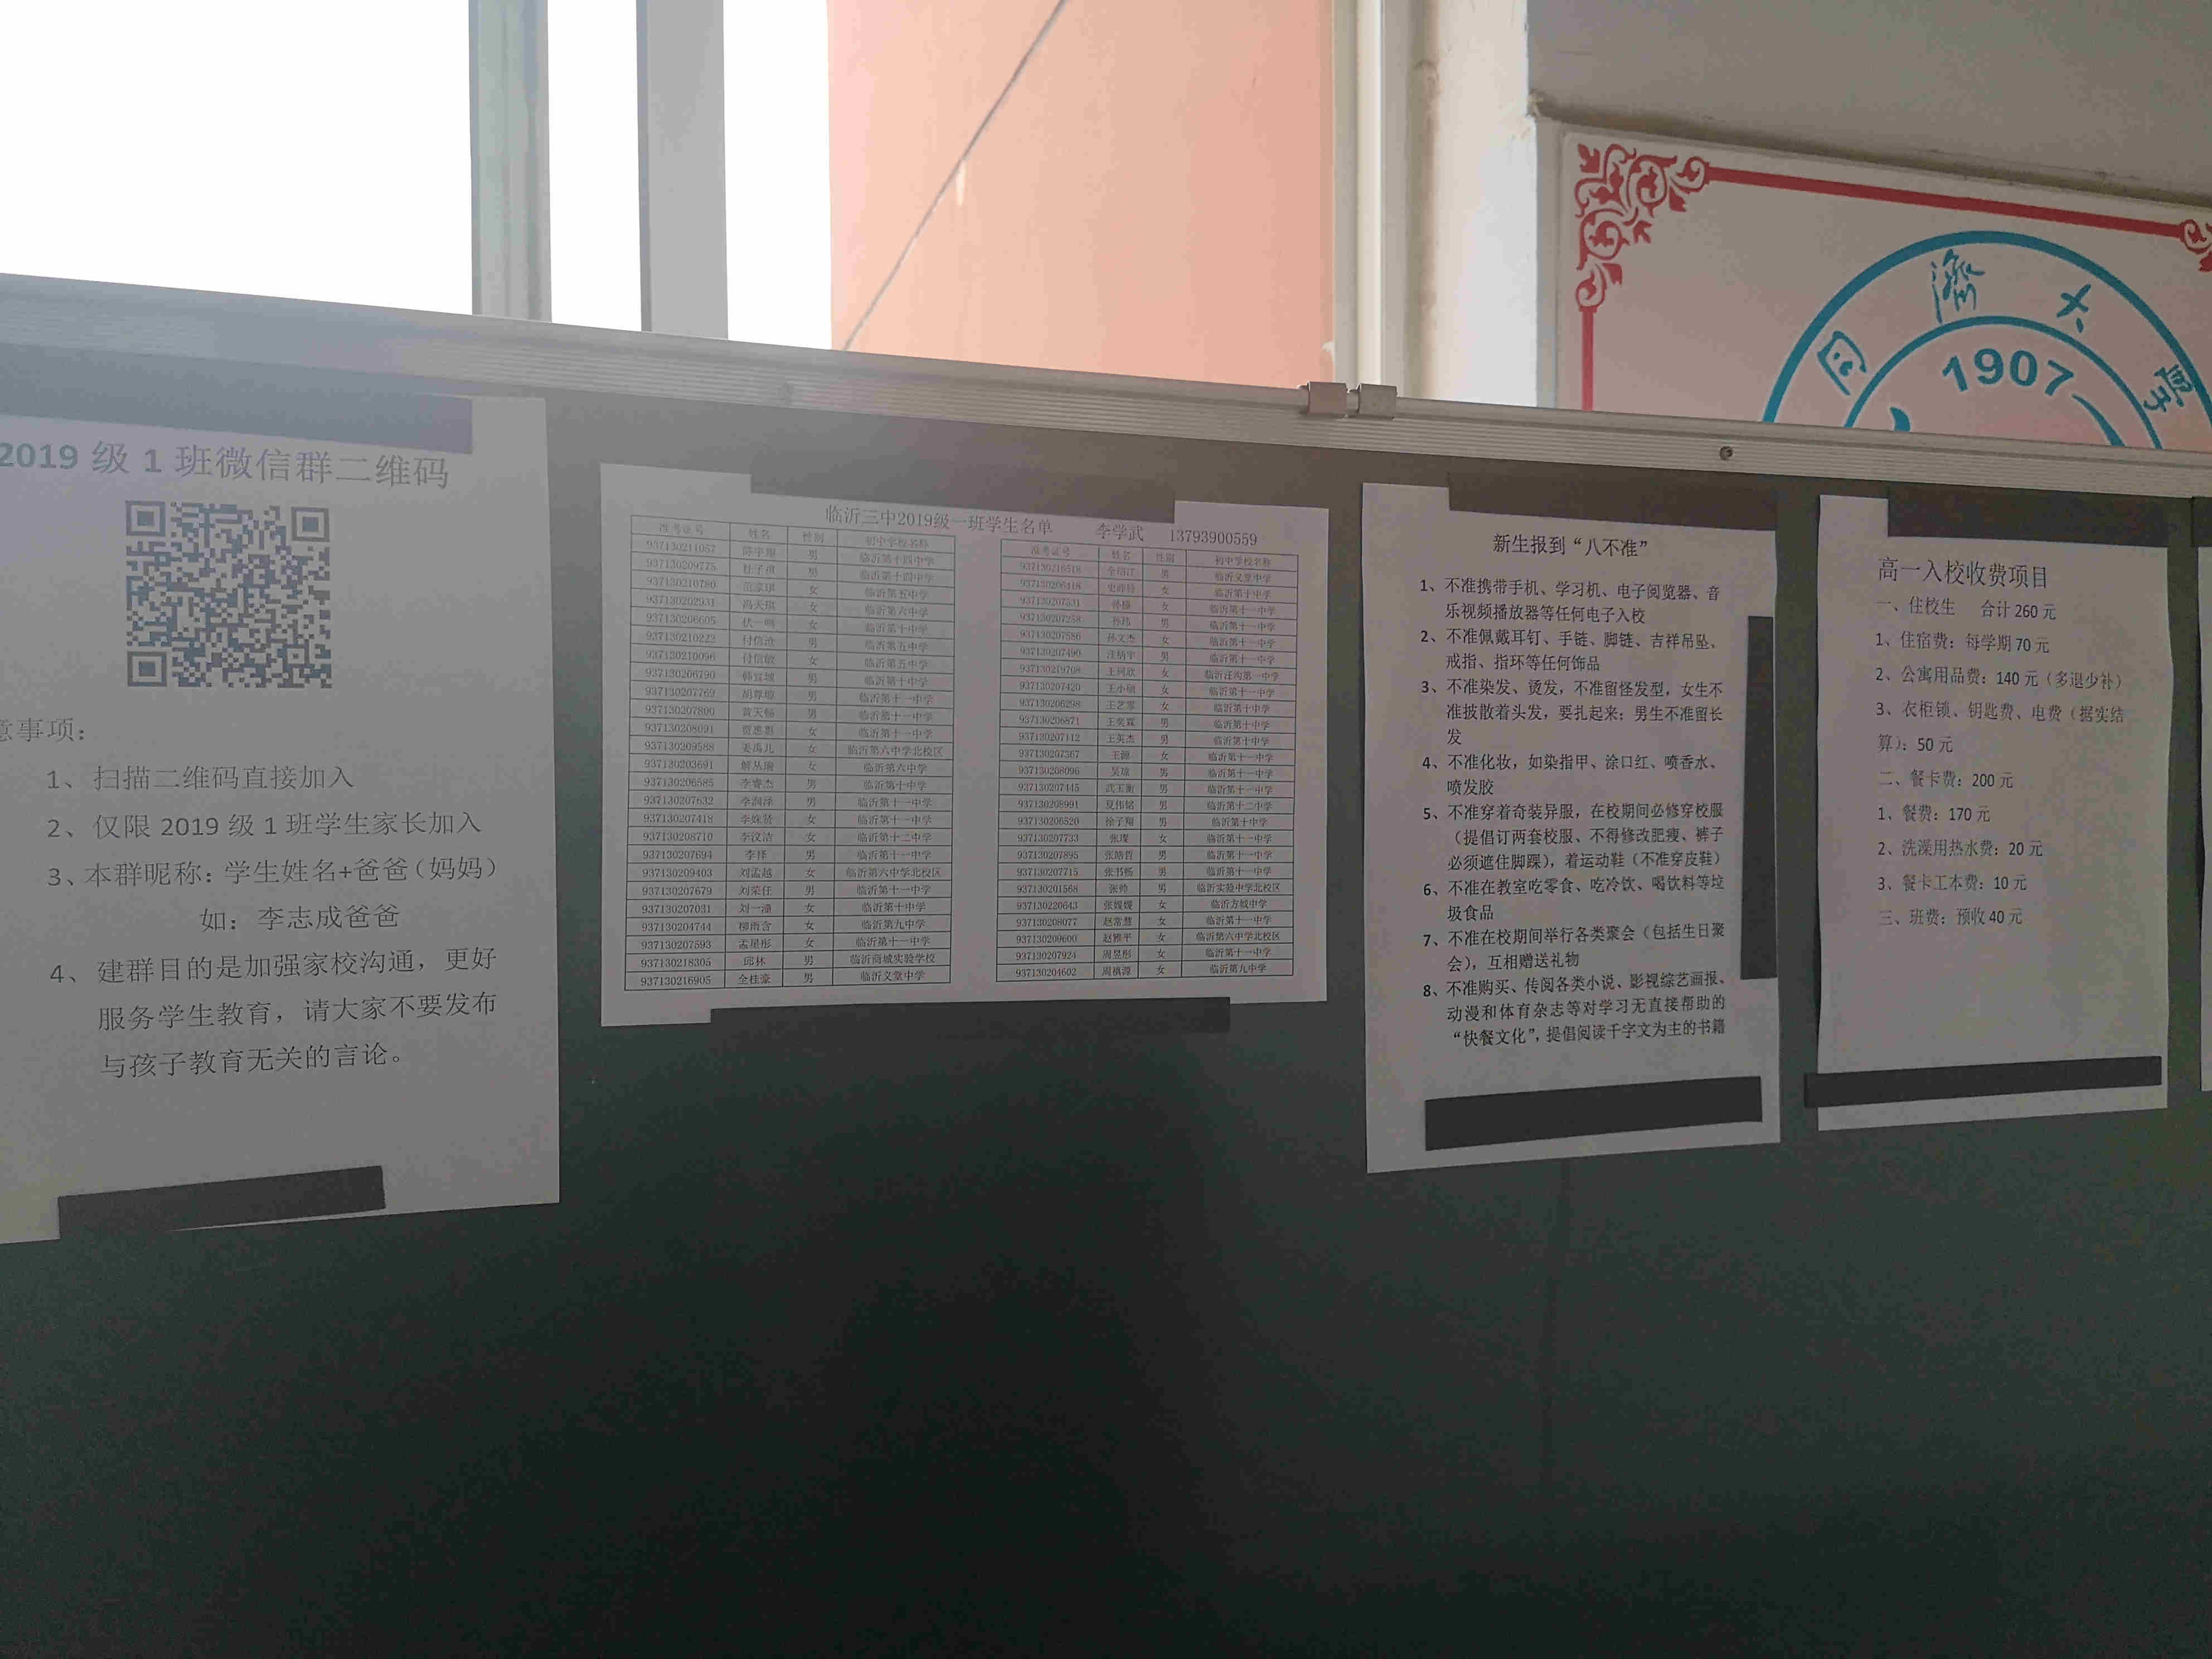 同濟大學
1907
2019 级 1 班微信群二维码
意事项：
1、扫描二维码直接加入
2、仅限 2019 级 1 班学生家长加入
3、本群昵称：学生姓名+爸爸（妈妈）
如：李志成爸爸
4、建群目的是加强家校沟通，更好
服务学生教育，请大家不要发布
与孩子教育无关的言论。
临沂三中2019级一班学生名单 李学武 13793900559
准考证号 姓名 性别 初中学校名称
937130211057 男 临沂第十四中学
937130209775 男 临沂第十四中学
937130210780 女 临沂第五中学
937130202931 冯天琪 女 临沂第六中学
937130206605 女 临沂第十中学
937130210222 男 临沂第五中学
937130210096 女 临沂第五中学
937130206790 男 临沂第十中学
937130207769 男 临沂第十一中学
937130207800 黄天畅 男 临沂第十一中学
937130208091 女 临沂第十一中学
937130209588 姜禹儿 女 临沂第六中学北校区
937130203691 解丛瑜 女 临沂第六中学
937130206585 李睿杰 男 临沂第十中学
937130207632 李润泽 男 临沂第十一中学
937130207418 女 临沂第十一中学
937130208710 李汶洁 女 临沂第十二中学
937130207694 李 男 临沂第十一中学
937130209403 刘孟越 女 临沂第六中学北校区
937130207679 刘荣任 男 临沂第十一中学
937130207031 刘一潼 女 临沂第十中学
937130204744 柳雨含 女 临沂第九中学
937130207593 孟星彤 女 临沂第十一中学
937130218305 邱林 男 临沂商城实验学校
937130216905 全桂豪 男 临沂义堂中学
准考证号 姓名 性别 初中学校名称
937130216518 男 临沂义堂中学
937130206418 女 临沂第十中学
937130207531 女 临沂第十一中学
937130207258 孙玮 男 临沂第十一中学
937130207586 孙文杰 女 临沂第十一中学
937130207490 汪炳宇 男 临沂第十一中学
937130219708 王珂欣 女 临沂汪沟第一中学
937130207420 王小硕 女 临沂第十一中学
937130206298 王艺霏 女 临沂第十中学
937130206871 王奕霖 男 临沂第十中学
937130207112 王英杰 男 临沂第十中学
937130207367 女 临沂第十一中学
937130208096 吴琼 男 临沂第十一中学
937130207445 武玉衡 男 临沂第十一中学
937130208991 夏伟铭 男 临沂第十二中学
937130206520 徐子翔 男 临沂第十中学
937130207733 张璨 女 临沂第十一中学
937130207895 张皓哲 男 临沂第十一中学
937130207715 张书畅 男 临沂第十一中学
937130201568 张帅 男 临沂实验中学北校区
937130220643 张媛媛 女 临沂方城中学
937130208077 赵常慧 女 临沂第十一中学
937130209600 赵雅平 女 临沂第六中学北校区
937130207924 周昱彤 女 临沂第十一中学
937130204602 周祺源 女 临沂第九中学
新生报到“八不准”
1、不准携带手机、学习机、电子阅览器、音
乐视频播放器等任何电子入校
2、不准佩戴耳钉、手链、脚链、吉祥吊坠、
戒指、指环等任何饰品
3、不准染发、烫发，不准留怪发型，女生不
准披散着头发，要扎起来；男生不准留长
发
4、不准化妆，如染指甲、涂口红、喷香水、
喷发胶
5、不准穿着奇装异服，在校期间必修穿校服
（提倡订两套校服、不得修改肥瘦、裤子
必须遮住脚踝），着运动鞋（不准穿皮鞋）
6、不准在教室吃零食、吃冷饮、喝饮料等垃
圾食品
7、不准在校期间举行各类聚会（包括生日聚
会），互相赠送礼物
8、不准购买、传阅各类小说、影视综艺画报、
动漫和体育杂志等对学习无直接帮助的
“快餐文化”，提倡阅读千字文为主的书籍
高一入校收费项目
一、住校生 合计 260 元
1、住宿费：每学期 70 元
2、公寓用品费：140 元（多退少补）
3、衣柜锁、钥匙费、电费（据实结
算）：50 元
二、餐卡费：200 元
1、餐费：170 元
2、洗澡用热水费：20 元
3、餐卡工本费：10 元
三、班费：预收 40 元